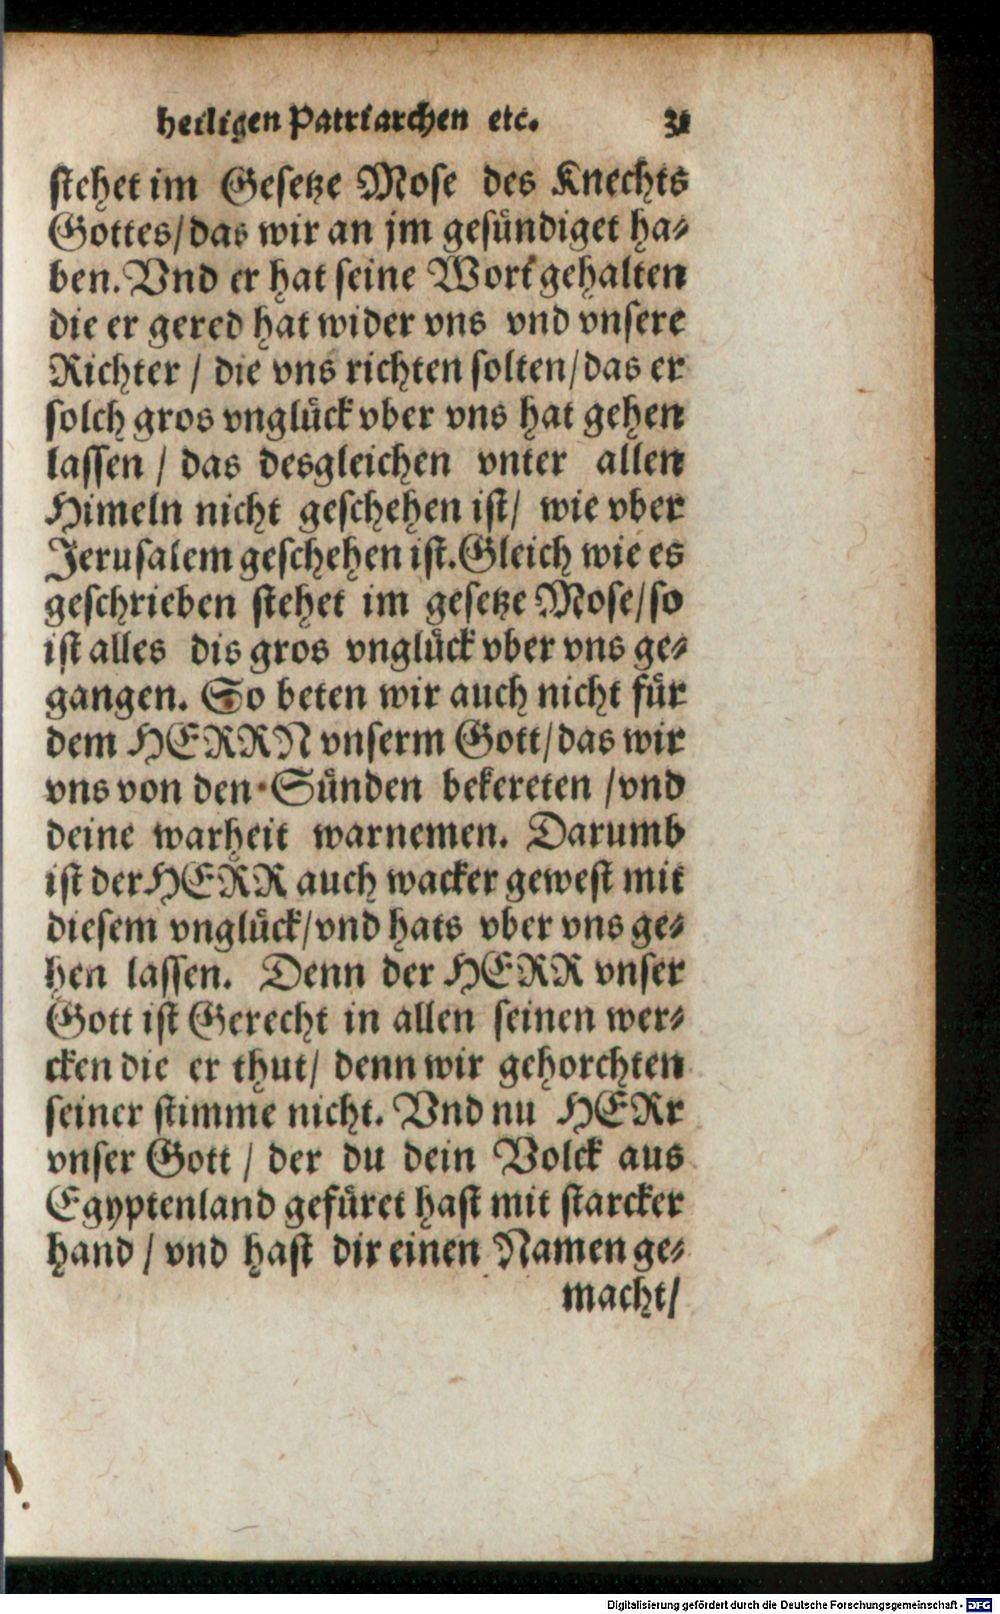 heiligen Patriarchen etc. 31
stehet im Gesetze Mose des Knechts
Gottes/das wir an jm gesündiget ha-
ben. Vnd er hat seine Wort gehalten
die er gered hat wider vns vnd vnsere
Richter / die vns richten solten/das er
solch gros vnglück vber vns hat gehen
lassen / das desgleichen vnter allen
Himeln nicht geschehen ist/ wie vber
Jerusalem geschehen ist. Gleich wie es
geschrieben stehet im gesetze Mose/so
ist alles dis gros vnglück vber vns ge-
gangen. So beten wir auch nicht für
dem HERRN vnserm Gott/das wir
vns von den Sünden bekereten /vnd
deine warheit warnemen. Darumb
ist der HERR auch wacker gewest mit
diesem vnglück/vnd hats vber vns ge-
hen lassen. Denn der HERR vnser
Gott ist Gerecht in allen seinen wer-
cken die er thut/ denn wir gehorchten
seiner stimme nicht. Vnd nu HERr
vnser Gott / der du dein Volck aus
Egyptenland gefüret hast mit starcker
hand / vnd hast dir einen Namen ge-
macht/
Digitalisierung gefördert durch die Deutsche Forschungsgemeinschaft - DFG